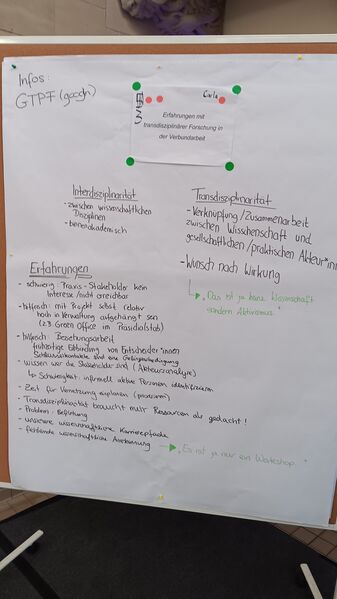 Infos:
GTPF (google)
Carla
Erfahrungen mit
transdisziplinärer Forschung in
der Verbundarbeit
Interdisziplinarität
- zwischen wissenschaftlichen
Disziplinen
- binnenakademisch
Transdisziplinarität
- Verknüpfung/Zusammenarbeit
zwischen Wissenschaft und
gesellschaftlichen/praktischen Akteur*inn
- Wunsch nach Wirkung
"Das ist ja keine Wissenschaft
sondern Aktivismus
Erfahrungen
- schwierig: Praxis-Stakeholder kein
Interesse/nicht erreichbar
- hilfreich: mit Projekt selbst relativ
hoch in Verwaltung aufgehängt sein
(z.B. Green Office im Präsidialstab)
- hilfreich: Beziehungsarbeit
frühzeitige Einbindung von Entscheider*innen
sind eine Gelingensbedingung
- wissen wer die Stakeholder sind (Akteursanalyse)
↳ Schwierigkeit: informell aktive Personen identifizieren
- Zeit für Vernetzung einplanen
- Transdisziplinarität braucht mehr Ressourcen als gedacht!
- Problem: Befristung
- unsichere wissenschaftliche Karrierepfade
- fehlende wissenschaftliche Anerkennung
"Es ist ja nur ein Workshop"